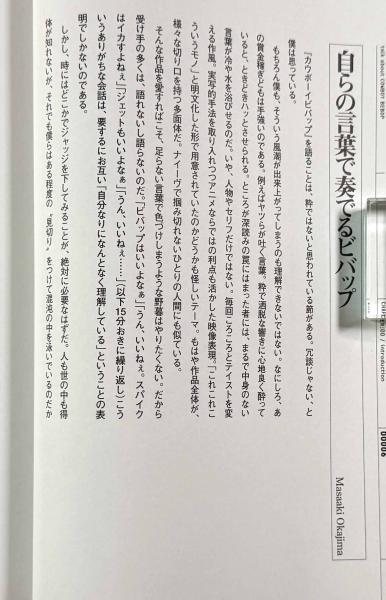 talk about COWBOY BEBOP
Introduction
00006
自らの言葉で奏でるビバップ
Masaaki Okajima
『カウボーイビバップ』を語ることは、粋ではないと思われている節がある。冗談じゃない、と
僕は思っている。
もちろん僕も、そういう風潮が出来上がってしまうのも理解できないではない。なにしろ、あ
の賞金稼ぎどもは手強いのである。例えばヤツらが吐く言葉。粋で洒脱な響きに心地良く酔って
いると、ときどきハッとさせられる。ところが深読みの罠にはまった者には、まるで中身のない
言葉が冷や水を浴びせるのだ。いや、人物やセリフだけではない。毎回ころころとテイストを変
える作風。実写的手法を取り入れつつアニメならではの利点も活かした映像表現。「これこれこ
ういうモノ」と明文化した形で用意されていたのかどうかも怪しいテーマ。もはや作品全体が、
様々な切り口を持つ多面体だ。ナイーヴで掴み切れないひとりの人間にも似ている。
そんな作品を愛すればこそ、足らない言葉で色づけしまうような野暮はやりたくない。だから
受け手の多くは、語れないし語らないのだ。「ビバップはいいよなぁ」「うん、いいねぇ。スパイク
はイカすよねぇ」「ジェットもいいよなぁ」「うん、いいねぇ……」(以下15分おきに繰り返し)こう
いうありがちな会話は、要するにお互い「自分なりになんとなく理解している」ということの表
明でしかないのである。
しかし、時にはどこかでジャッジを下してみることが、絶対に必要なはずだ。人も世の中も得
体が知れないが、それでも僕らはある程度の〝見切り〟をつけて混沌の中を泳いでいるのだか